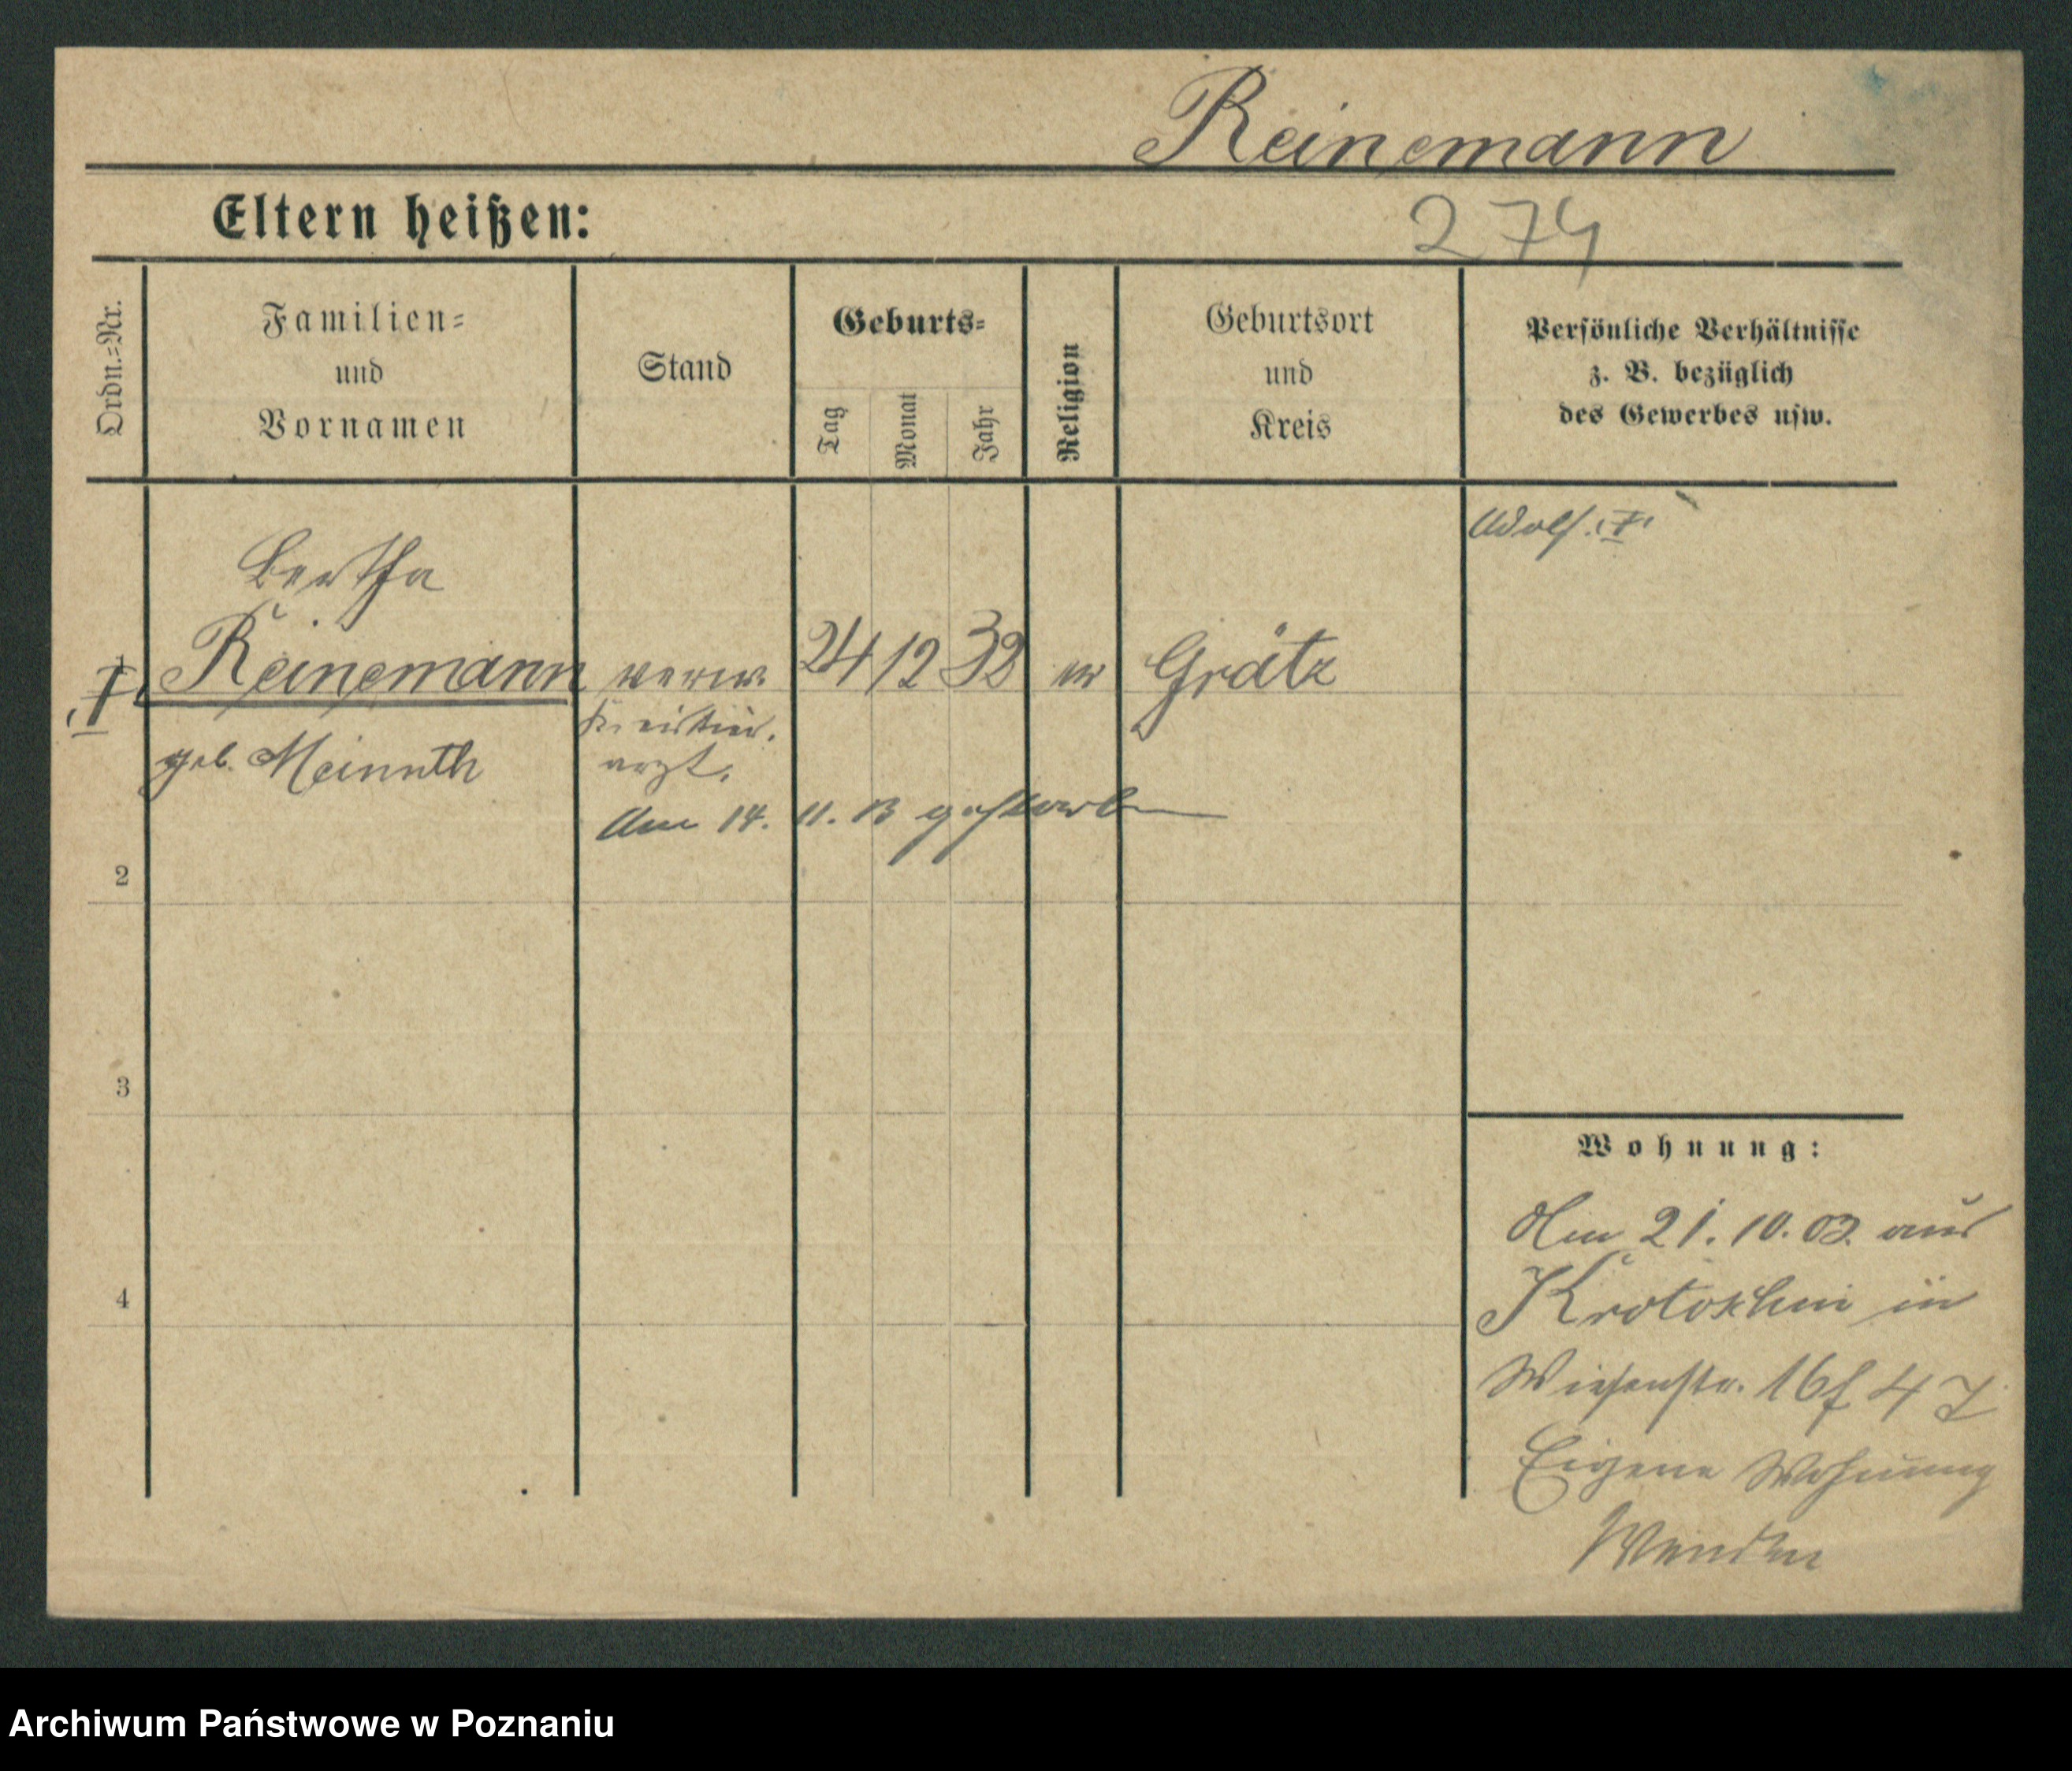 Reinemann
Eltern heißen:
274
Ordn.=Nr.
Familien=
und
Vornamen
Stand
Geburts=
Tag
Monat
Jahr
Religion
Geburtsort
und
Kreis
Persönliche Verhältnisse
z. B. bezüglich
des Gewerbes usw.
Adolf.
Bertha
Reinemann verw. 24 12 32 ev Grätz
Kreistier.
arzt.
geb.
Am 14. 11. 13 gestorben
2
3
4
Wohnung:
Am 21. 10. 03 aus
Krotoschin in
Wiesenstr. 16 f 4
Eigene Wohnung
Wenden
Archiwum Państwowe w Poznaniu